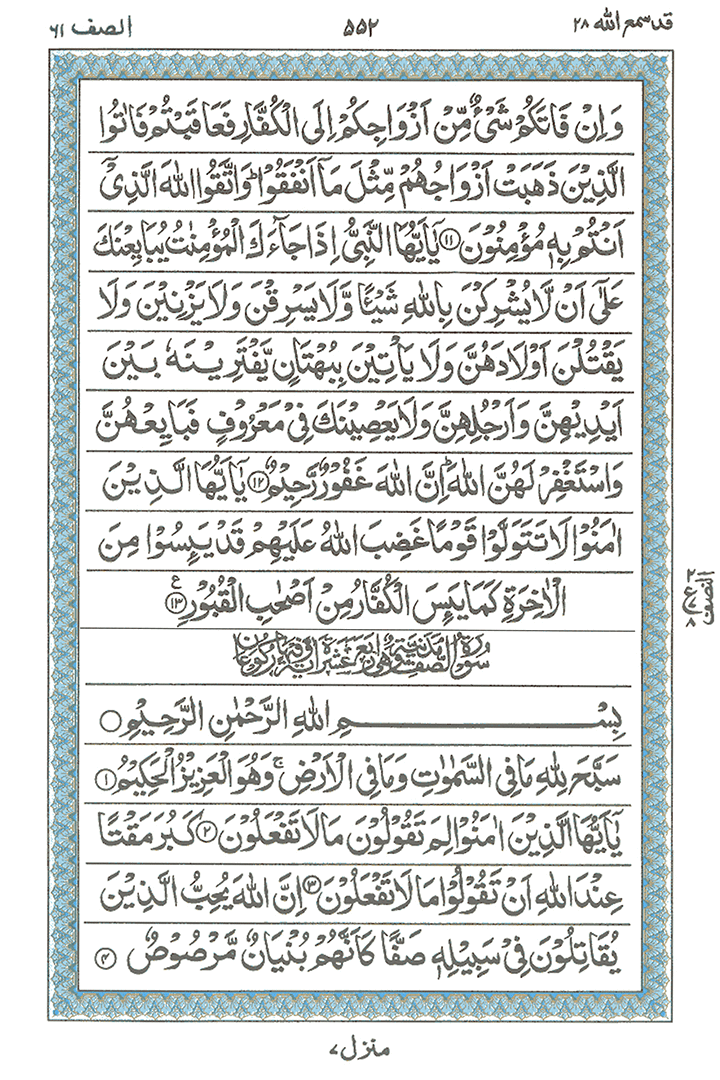 قد سمع الله ۲۸ ۵۵۲ الصف ۶۱
وَاِنْ فَاتَكُمْ شَىْءٌ مِّنْ اَزْوَاجِكُمْ اِلَى الْكُفَّارِ فَعَاقَبْتُمْ فَاٰتُوا
الَّذِيْنَ ذَهَبَتْ اَزْوَاجُهُمْ مِّثْلَ مَآ اَنْفَقُوْا ؕ وَاتَّقُوا اللّٰهَ الَّذِىْۤ
اَنْتُمْ بِهٖ مُؤْمِنُوْنَ ﴿۱۱﴾ يٰۤاَيُّهَا النَّبِىُّ اِذَا جَآءَكَ الْمُؤْمِنٰتُ يُبَايِعْنَكَ
عَلٰٓى اَنْ لَّا يُشْرِكْنَ بِاللّٰهِ شَيْـًٔا وَّلَا يَسْرِقْنَ وَلَا يَزْنِيْنَ وَلَا
يَقْتُلْنَ اَوْلَادَهُنَّ وَلَا يَاْتِيْنَ بِبُهْتَانٍ يَّفْتَرِيْنَهٗ بَيْنَ
اَيْدِيْهِنَّ وَاَرْجُلِهِنَّ وَلَا يَعْصِيْنَكَ فِىْ مَعْرُوْفٍ فَبَايِعْهُنَّ
وَاسْتَغْفِرْ لَهُنَّ اللّٰهَ ؕ اِنَّ اللّٰهَ غَفُوْرٌ رَّحِيْمٌ ﴿۱۲﴾ يٰۤاَيُّهَا الَّذِيْنَ
اٰمَنُوْا لَا تَتَوَلَّوْا قَوْمًا غَضِبَ اللّٰهُ عَلَيْهِمْ قَدْ يَىِٕسُوْا مِنَ
الْاٰخِرَةِ كَمَا يَىِٕسَ الْكُفَّارُ مِنْ اَصْحٰبِ الْقُبُوْرِ ﴿۱۳﴾ ع
سُوْرَةُ الصَّفِّ مَدَنِيَّةٌ وَّهِىَ اَرْبَعَ عَشْرَةَ اٰيَةً وَّفِيْهَا رُكُوْعَانِ
بِسْمِ اللّٰهِ الرَّحْمٰنِ الرَّحِيْمِ
سَبَّحَ لِلّٰهِ مَا فِى السَّمٰوٰتِ وَمَا فِى الْاَرْضِ ۚ وَهُوَ الْعَزِيْزُ الْحَكِيْمُ ﴿۱﴾
يٰۤاَيُّهَا الَّذِيْنَ اٰمَنُوْا لِمَ تَقُوْلُوْنَ مَا لَا تَفْعَلُوْنَ ﴿۲﴾ كَبُرَ مَقْتًا
عِنْدَ اللّٰهِ اَنْ تَقُوْلُوْا مَا لَا تَفْعَلُوْنَ ﴿۳﴾ اِنَّ اللّٰهَ يُحِبُّ الَّذِيْنَ
يُقَاتِلُوْنَ فِىْ سَبِيْلِهٖ صَفًّا كَاَنَّهُمْ بُنْيَانٌ مَّرْصُوْصٌ ﴿۴﴾
النصف
۲
ع
۸
منزل ۷